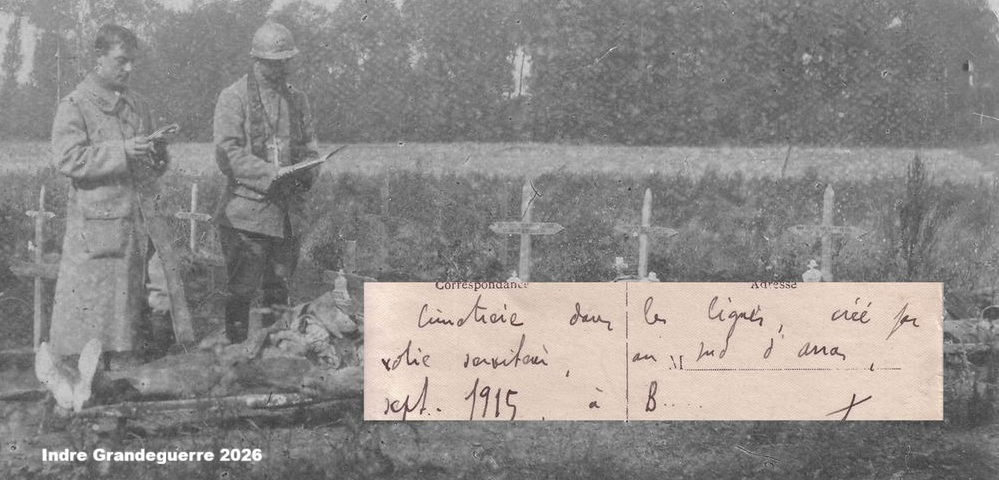 Correspondance Adresse
Cimetière dans les lignes, créé par
votre serviteur, au M sud d'Arras,
sept. 1915, à B....
Indre Grandeguerre 2026